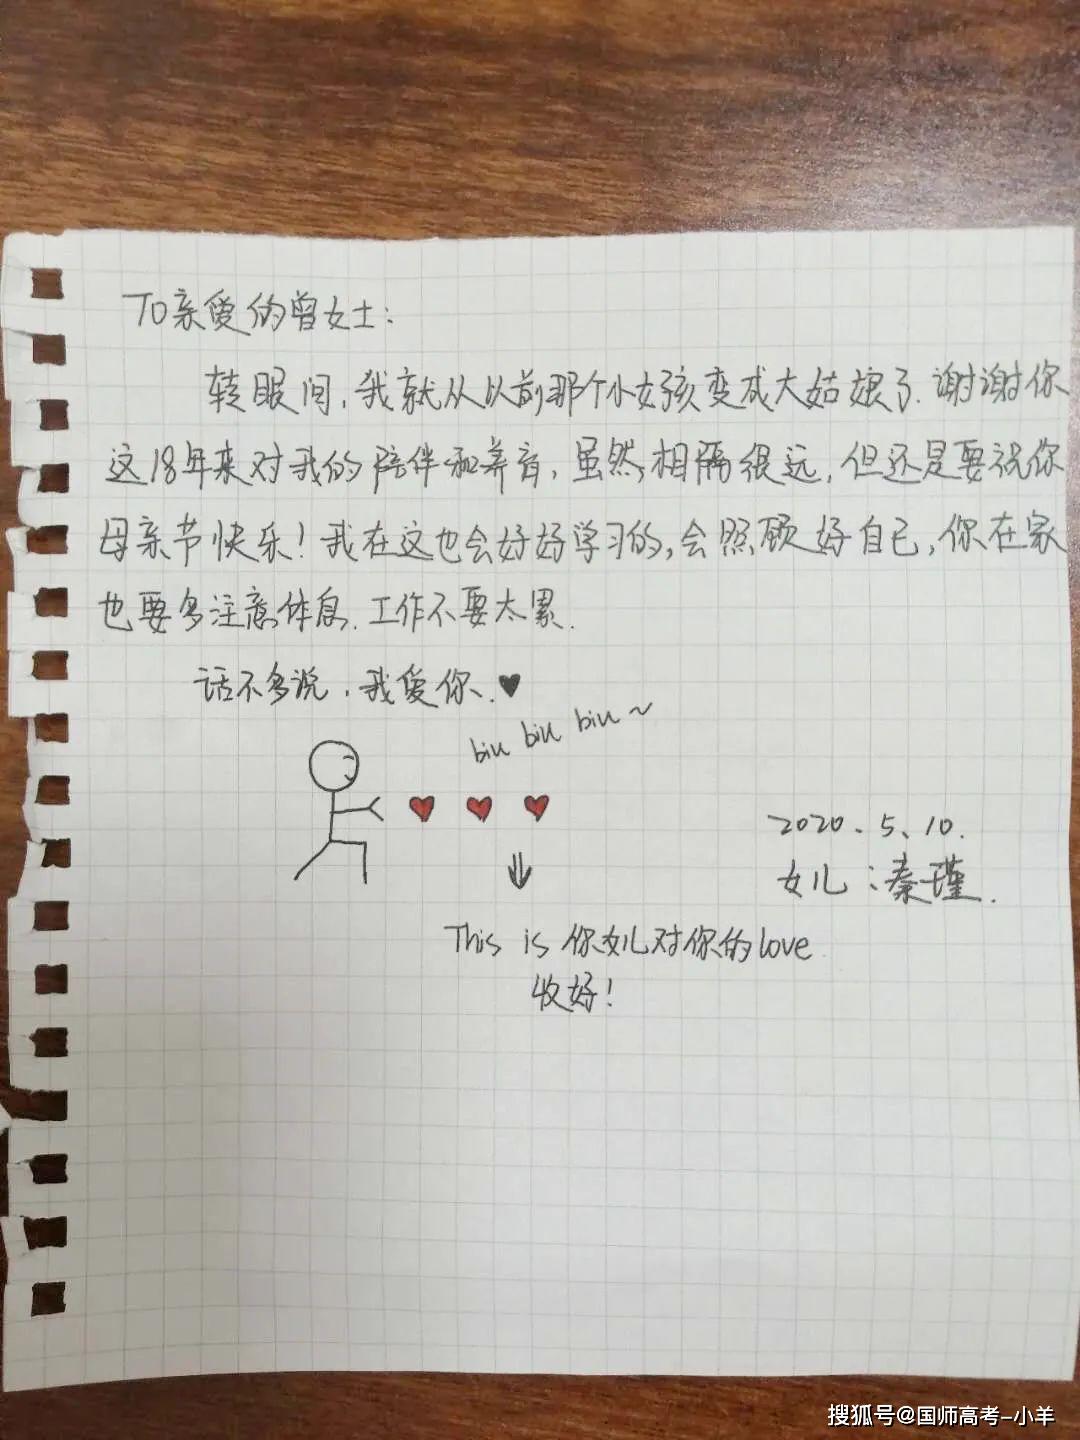 To亲爱的曾女士：
转眼间，我就从以前那个小女孩变成大姑娘了.谢谢你
这18年来对我的陪伴和养育，虽然相隔很远，但还是要祝你
母亲节快乐！我在这也会好好学习的，会照顾好自己，你在家
也要多注意休息.工作不要太累.
话不多说.我爱你、♥
biu biu biu ~
2020、5、10.
女儿：秦瑾.
This is 你女儿对你的love
收好！
搜狐号@国师高考-小羊